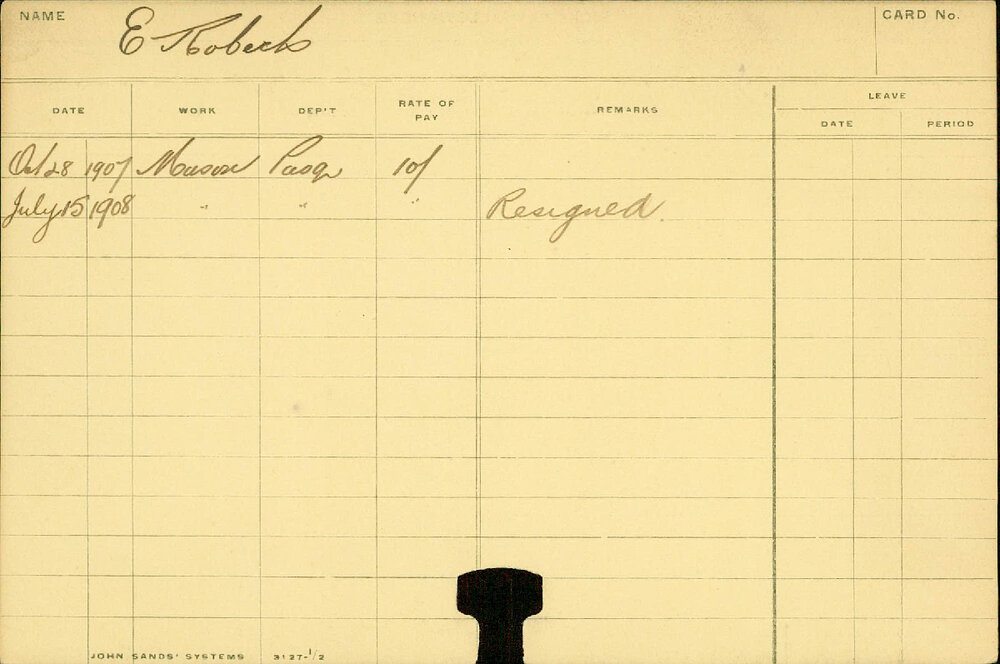 NAME E Robeck CARD No.
DATE WORK DEP'T RATE OF PAY REMARKS LEAVE
DATE PERIOD
Oct 28 1907 Mason 10/
July 15 1908 " " " Resigned.
JOHN SANDS' SYSTEMS 3127-1/2